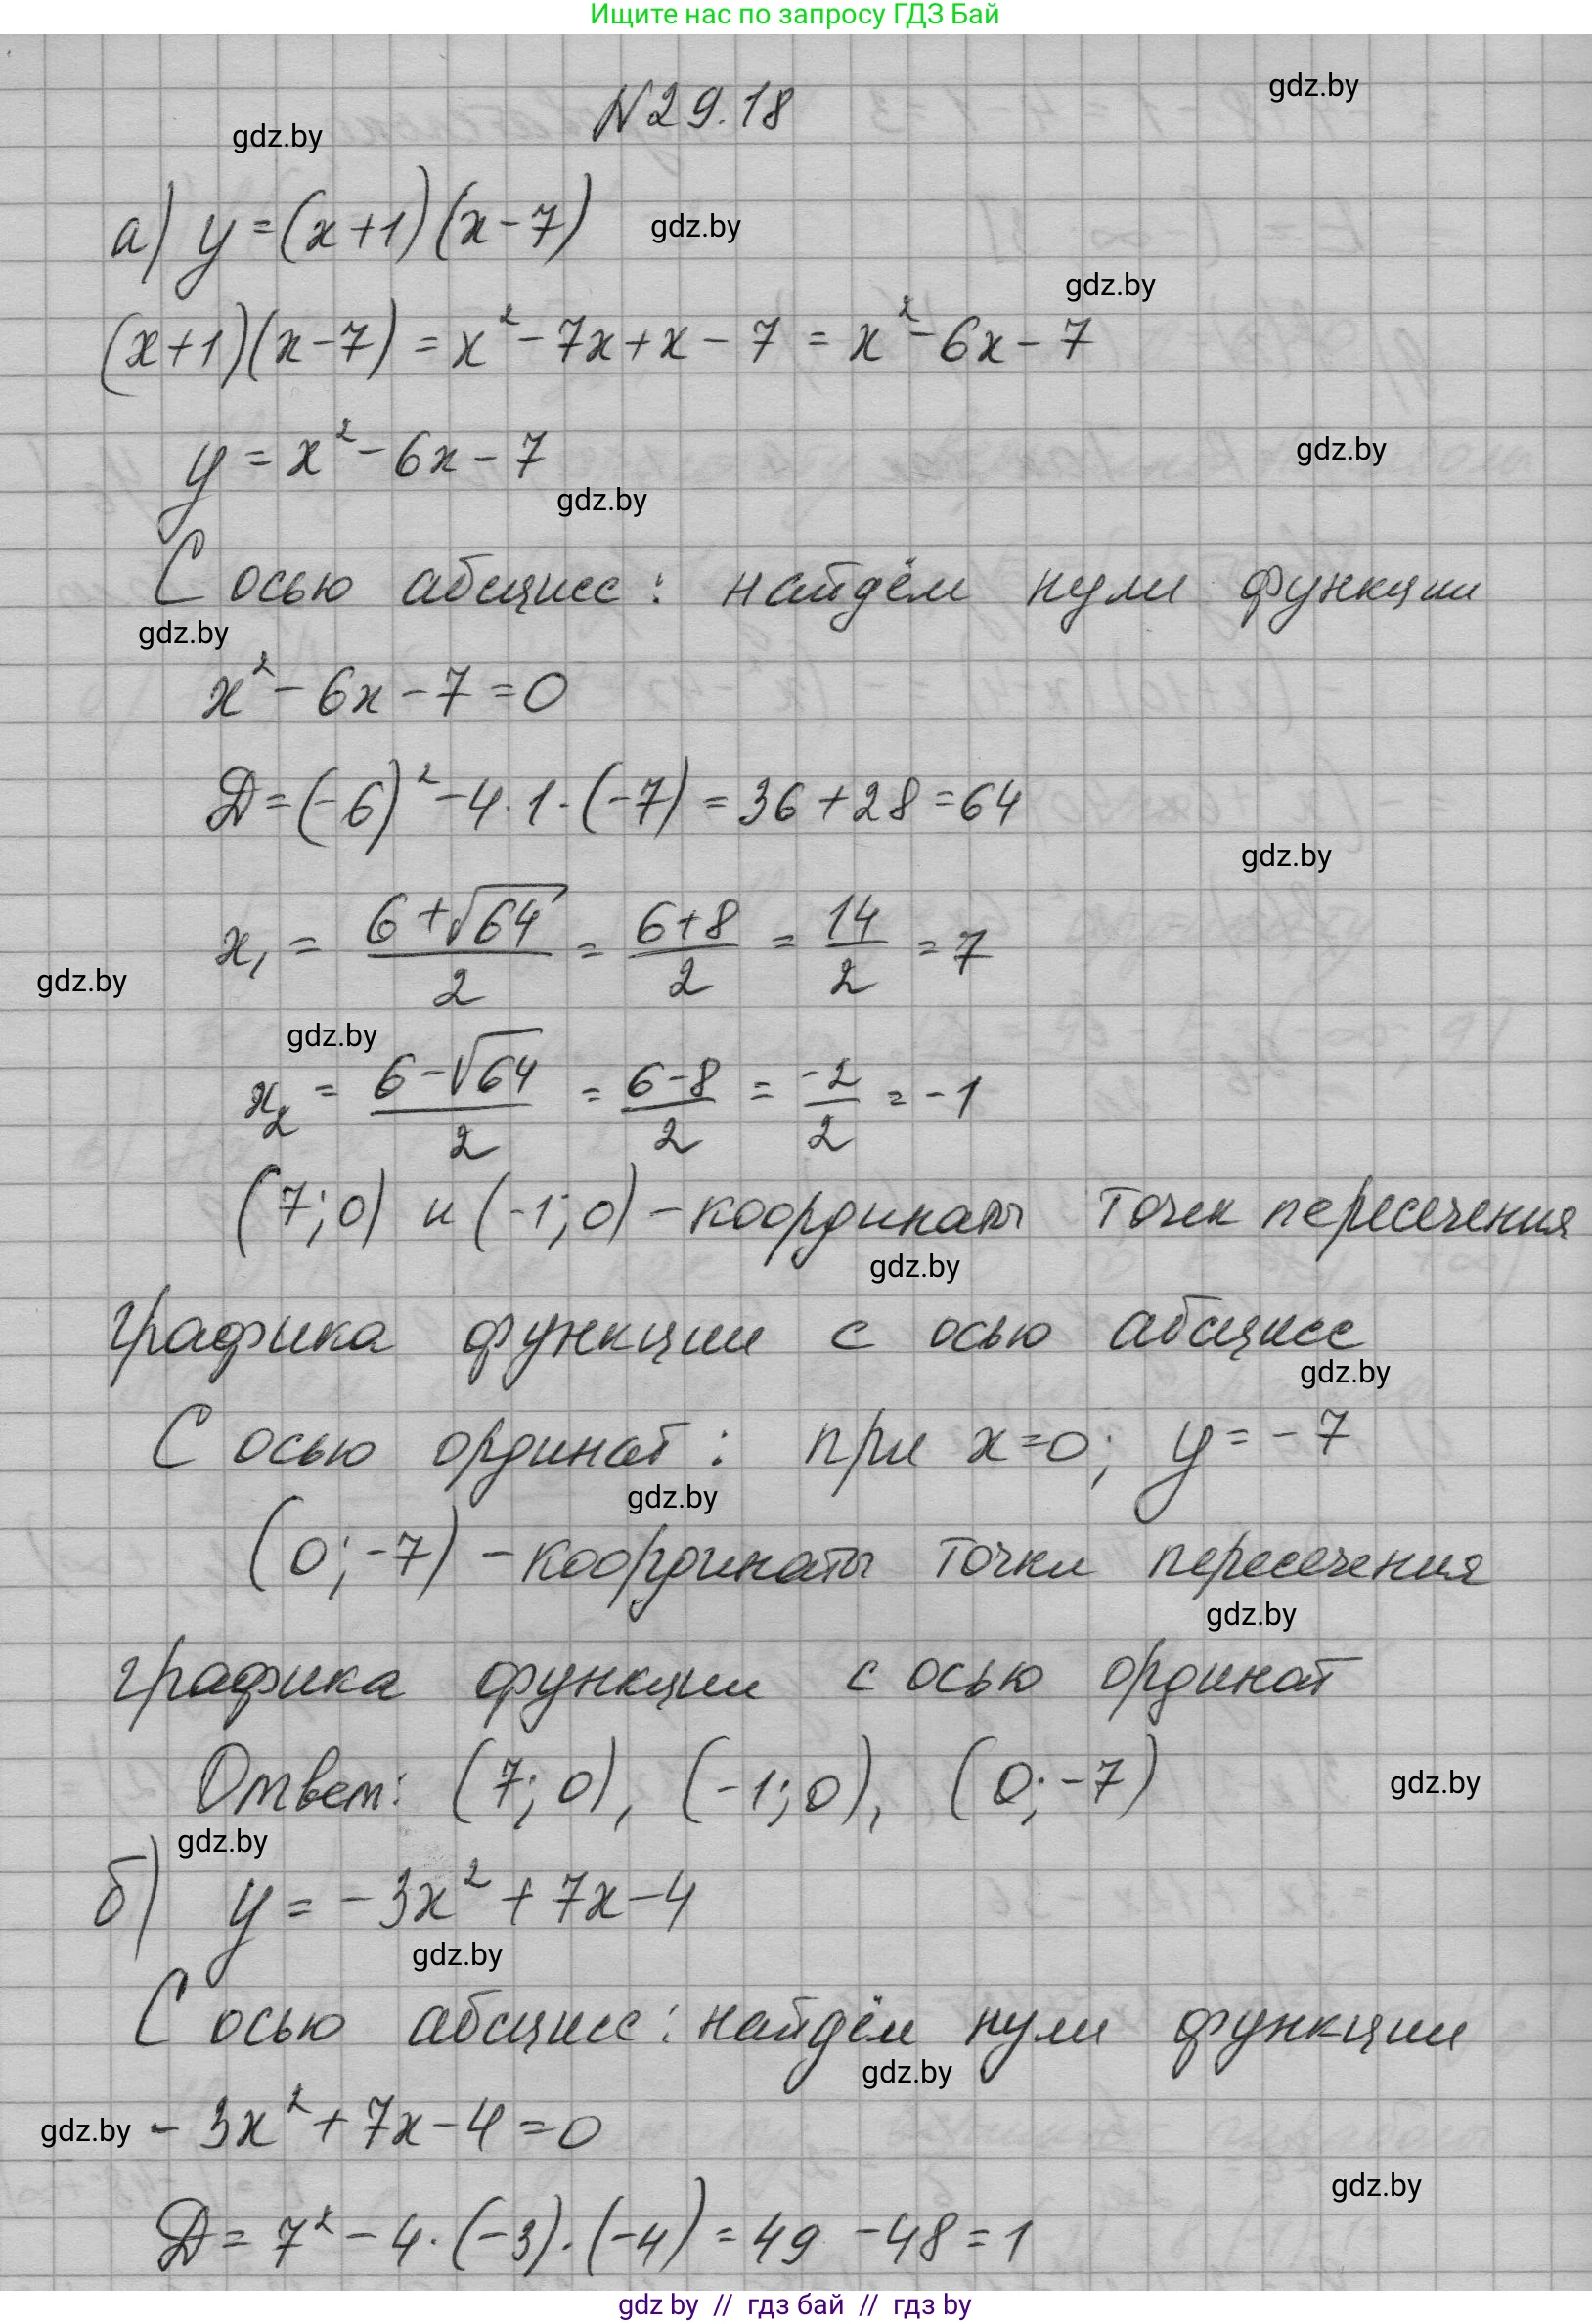 Ищите нас по запросу ГДЗ Бай
N29.18
gdz.by
gdz.by
а) y=(x+1)(x-7)
gdz.by
gdz.by
(x+1)(x-7) = x²-7x+x-7 = x²-6x-7
y = x²-6x-7
gdz.by
gdz.by
С осью абсцисс: найдём нули функции
gdz.by
x²-6x-7=0
D=(-6)²-4·1·(-7)=36+28=64
gdz.by
x₁ = (6+√64)/2 = (6+8)/2 = 14/2 = 7
gdz.by
gdz.by
x₂ = (6-√64)/2 = (6-8)/2 = -2/2 = -1
(7;0) и (-1;0) - координаты точек пересечения
gdz.by
графика функции с осью абсцисс
gdz.by
С осью ординат: при x=0; y=-7
gdz.by
(0;-7) - координаты точки пересечения
gdz.by
графика функции с осью ординат
Ответ: (7;0), (-1;0), (0;-7)
gdz.by
gdz.by
б) y = -3x²+7x-4
gdz.by
С осью абсцисс: найдём нули функции
gdz.by
gdz.by
-3x²+7x-4=0
gdz.by
D=7²-4·(-3)·(-4)=49-48=1
gdz by // гдз бай // гдз by